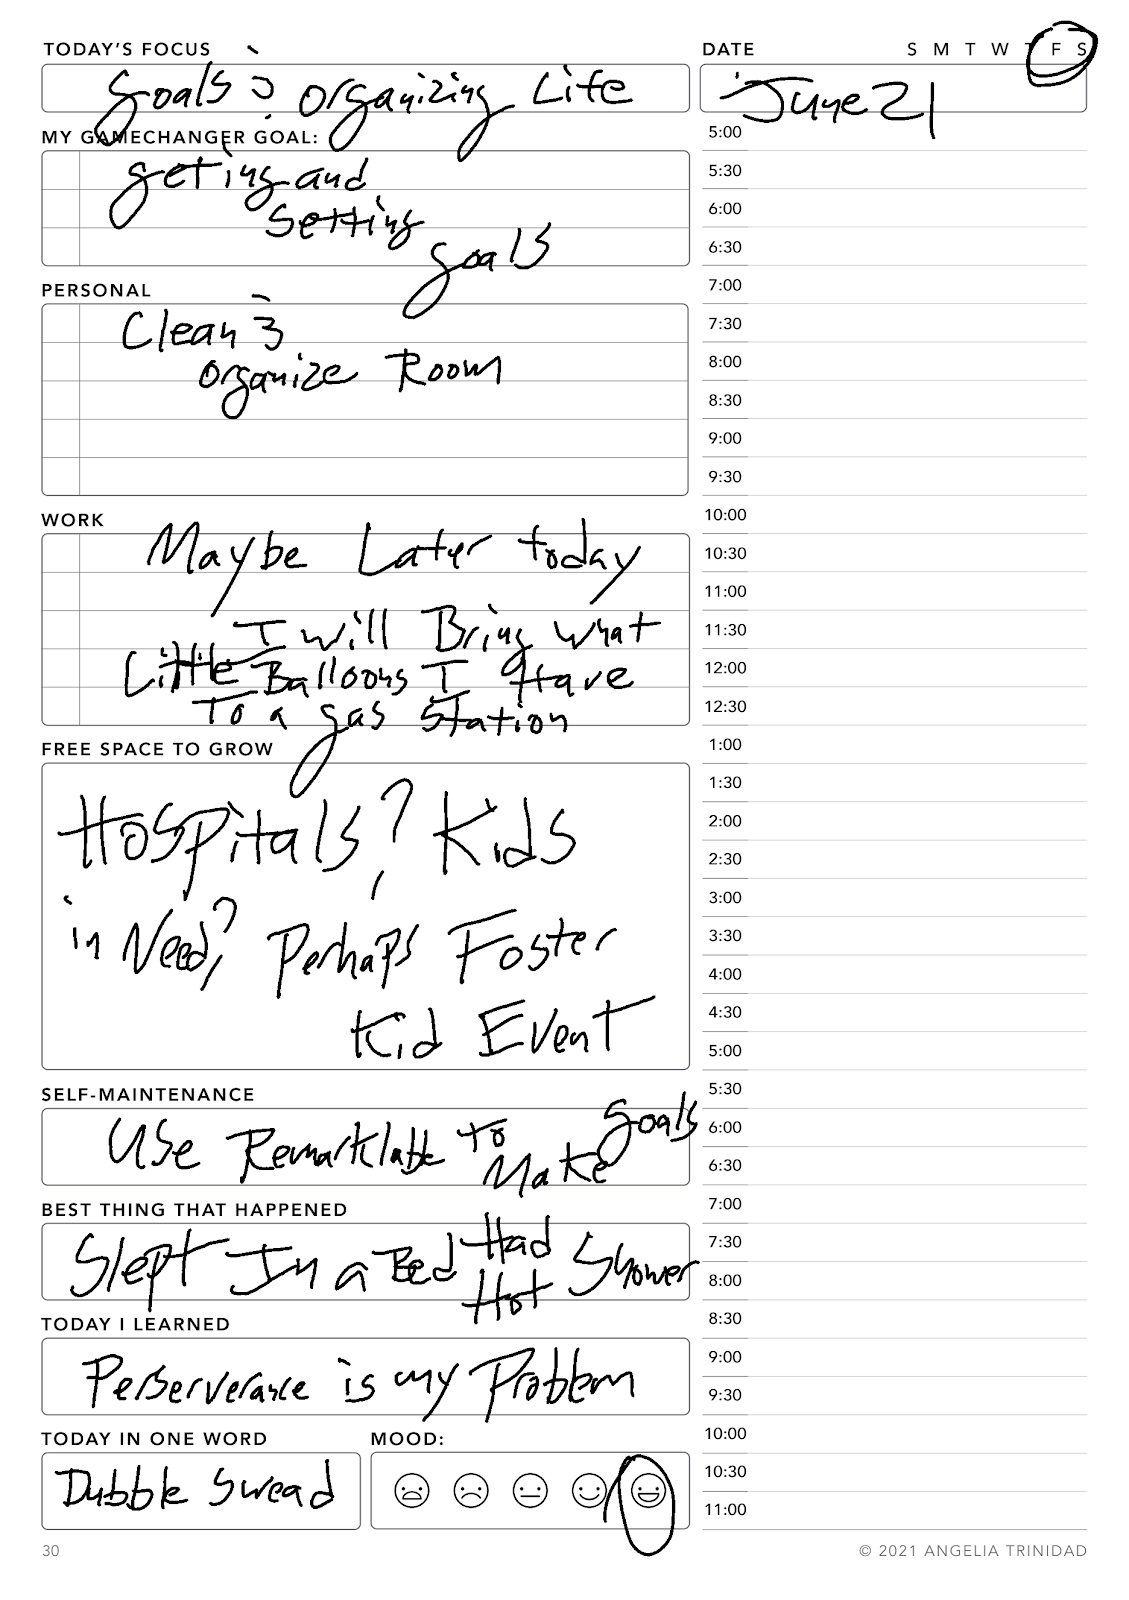 TODAY'S FOCUS
Goals & organizing Life
DATE
S M T W T F S
June 21
MY GAMECHANGER GOAL:
geting and
setting
goals
PERSONAL
Clean &
organize Room
WORK
Maybe Later today
I will Bring what
Little Balloons I Have
To a gas Station
FREE SPACE TO GROW
Hospitals? Kids
in Need? Perhaps Foster
Kid Event
SELF-MAINTENANCE
Use Remarklable to
Make goals
BEST THING THAT HAPPENED
Slept In a Bed Had
Hot Shower
TODAY I LEARNED
Perserverance is my Problem
TODAY IN ONE WORD
Dubble Swead
MOOD:
5:00
5:30
6:00
6:30
7:00
7:30
8:00
8:30
9:00
9:30
10:00
10:30
11:00
11:30
12:00
12:30
1:00
1:30
2:00
2:30
3:00
3:30
4:00
4:30
5:00
5:30
6:00
6:30
7:00
7:30
8:00
8:30
9:00
9:30
10:00
10:30
11:00
30
© 2021 ANGELIA TRINIDAD